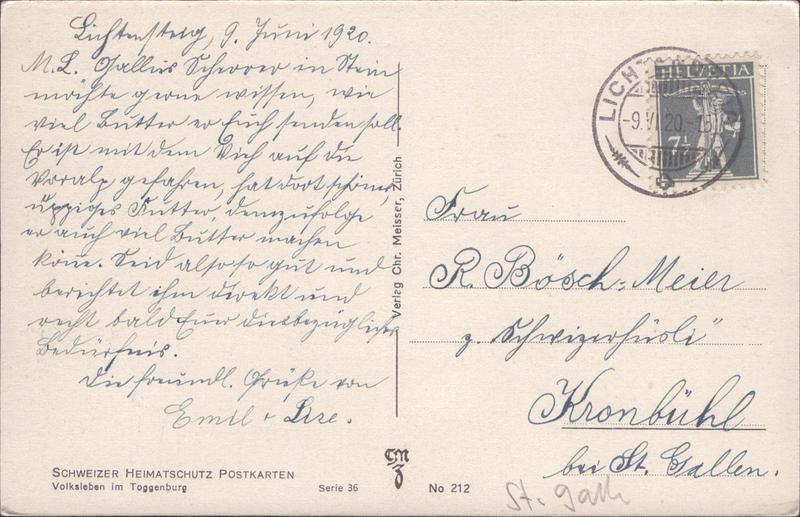 Lichtensteig, 9. Juni 1920.
M. L. Gallus Scherrer in Stein
möchte gerne wissen, wie
viel Butter er Euch senden soll.
Er ist mit dem Vieh auf die
Voralp gefahren, hat dort schönes,
üppiges Futter, demzufolge
er auch viel Butter machen
könne. Seid also so gut und
berichtet ihm direkt und
recht bald Euer diesbezügliches
Bedürfnis.
Die freundl. Grüße von
Emil +
SCHWEIZER HEIMATSCHUTZ POSTKARTEN
Volksleben im Toggenburg
Serie 36
No 212
Verlag Chr. Meisser, Zürich
CM
Z
HELVETIA
7½
-9.VI.20.-
Frau
R. Bösch-Meier
z. Schwizerhüsli"
Kronbühl
bei St. Gallen.
St. Gall